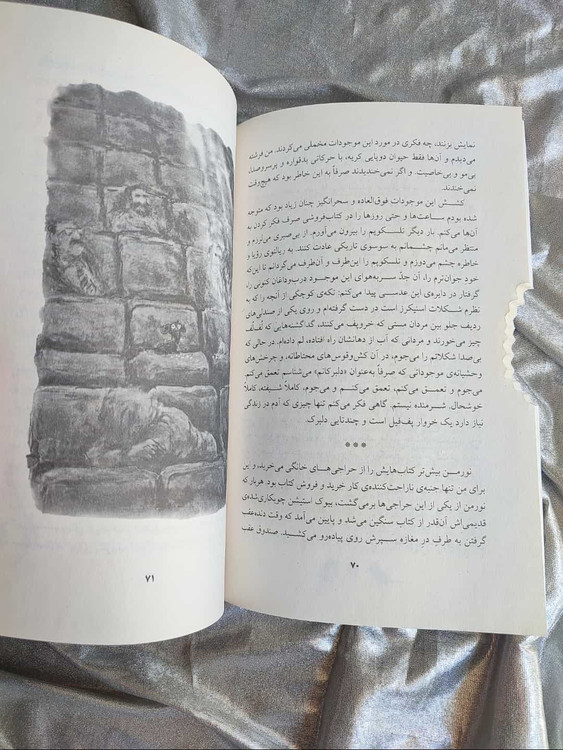 نمایش بزنند، چه فکری در مورد این موجودات مخملی می‌کردند. من فرشته
می‌دیدم و آن‌ها فقط حیوان دوپایی کریه، با حرکاتی بدقواره و پرسروصدا،
بی‌مو و بی‌خاصیت. و اگر نمی‌خندیدند صرفاً به این خاطر بود که هیچ‌وقت
نمی‌خندند.
کشش این موجودات فوق‌العاده و سحرانگیز چنان زیاد بود که متوجه
شده بودم ساعت‌ها و حتی روزها را در کتاب‌فروشی صرف فکر کردن به
آن‌ها می‌کنم. بار دیگر تلسکوپم را بیرون می‌آورم. از بی‌صبری می‌لرزم و
منتظر می‌مانم چشمانم به سوسوی تاریکی عادت کنند. به ریالتوی رؤیا و
خاطره چشم می‌دوزم و تلسکوپم را این‌طرف و آن‌طرف می‌گردانم تا این‌که
خود جوان‌ترم را، آن جدّ سربه‌هوای این موجود درب‌وداغان کنونی را،
گرفتار در دایره‌ی این عدسی پیدا می‌کنم. تکه‌ی کوچکی از آنچه را که به
نظرم شکلات اسنیکرز است در دست گرفته‌ام و روی یکی از صندلی‌های
ردیف جلو بین مردان مستی که خروپف می‌کنند، گداگشنه‌هایی که تُف‌تُف
چیز می‌خورند و مردانی که آب از دهانشان راه افتاده، لم داده‌ام. در حالی که
بی‌صدا شکلاتم را می‌جوم، در آن کش‌وقوس‌های محتاطانه، و چرخش‌های
وحشیانه‌ی موجوداتی که صرفاً به‌عنوان «دلبرکانم» می‌شناسم تعمق می‌کنم.
می‌جوم و تعمق می‌کنم، تعمق می‌کنم و می‌جوم، کاملاً شیفته، کاملاً
خوشحال. شرمنده نیستم. گاهی فکر می‌کنم تنها چیزی که آدم در زندگی
نیاز دارد یک خروار پف‌فیل است و چندتایی دلبرک.
نورمن بیش‌تر کتاب‌هایش را از حراجی‌های خانگی می‌خرید، و این
برای من تنها جنبه‌ی ناراحت‌کننده‌ی کار خرید و فروش کتاب بود. هربار که
نورمن از یکی از این حراجی‌ها برمی‌گشت، بیوک استیشن چوبکاری‌شده‌ی
قدیمی‌اش آن‌قدر از کتاب سنگین می‌شد و پایین می‌آمد که وقت دنده‌عقب
گرفتن به طرفِ درِ مغازه سپرش روی پیاده‌رو می‌کشید. صندوق عقب
۷۰
۷۱